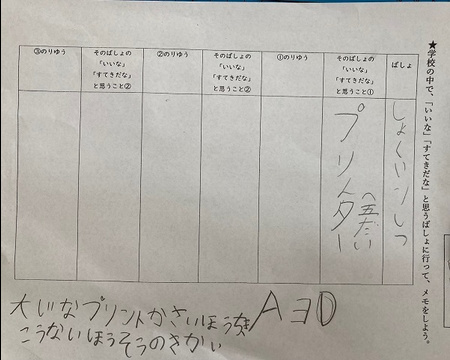 ★学校の中で、「いいな」「すてきだな」と思うばしょに行って、メモをしよう。
ばしょ
しょくいんしつ
そのばしょの
「いいな」
「すてきだな」
と思うこと①
プリンター
(五だい
①のりゆう
そのばしょの
「いいな」
「すてきだな」
と思うこと②
②のりゆう
そのばしょの
「いいな」
「すてきだな」
と思うこと②
③のりゆう
大じなプリントかさいほう
AED
こうないほうそうのきかい